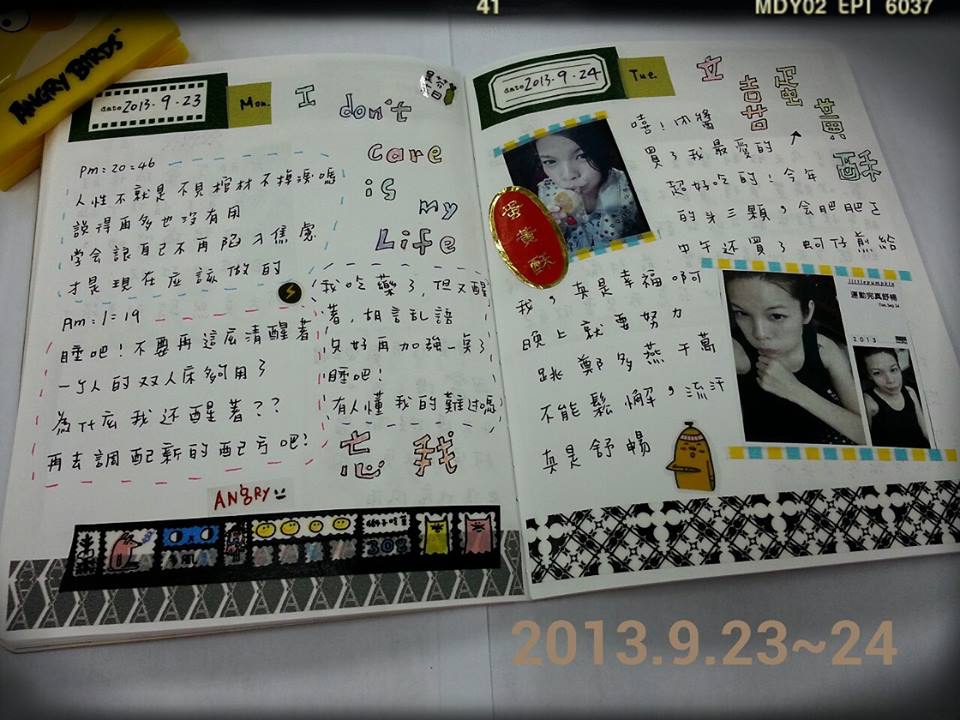 41
MDY02 EPI 6037
ANGRY BIRDS
date 2013.9.23
Mon.
I
don't
care
is
my
Life
Pm:20=46
人性不就是不見棺材不掉淚嗎
說得再多也沒有用
學會讓自己不再陷入焦慮
才是現在應該做的
Am:1=19
睡吧!不要再這麼清醒着
一個人的双人床夠用了
為什庅我还醒着??
再去調配新的配方吧!
我吃藥了,但又醒
著,胡言乱語
只好再加強一臭了
睡吧!
有人懂我的難过嗎
忘我
ANGRY
date 2013.9.24
Tue.
立吉苦
蛋黃酥
嘻!內醬
買了我最愛的
超好吃的!今年
的第三顆,会肥肥
中午还買了蚵仔煎給
我,真是幸福啊
晚上就要努力
跳鄭多燕千萬
不能鬆懈,流汗
真是舒暢
蛋黃酥
littlepumpkin
運動完真舒暢
Tue, Sep 24
2013
2013.9.23~24